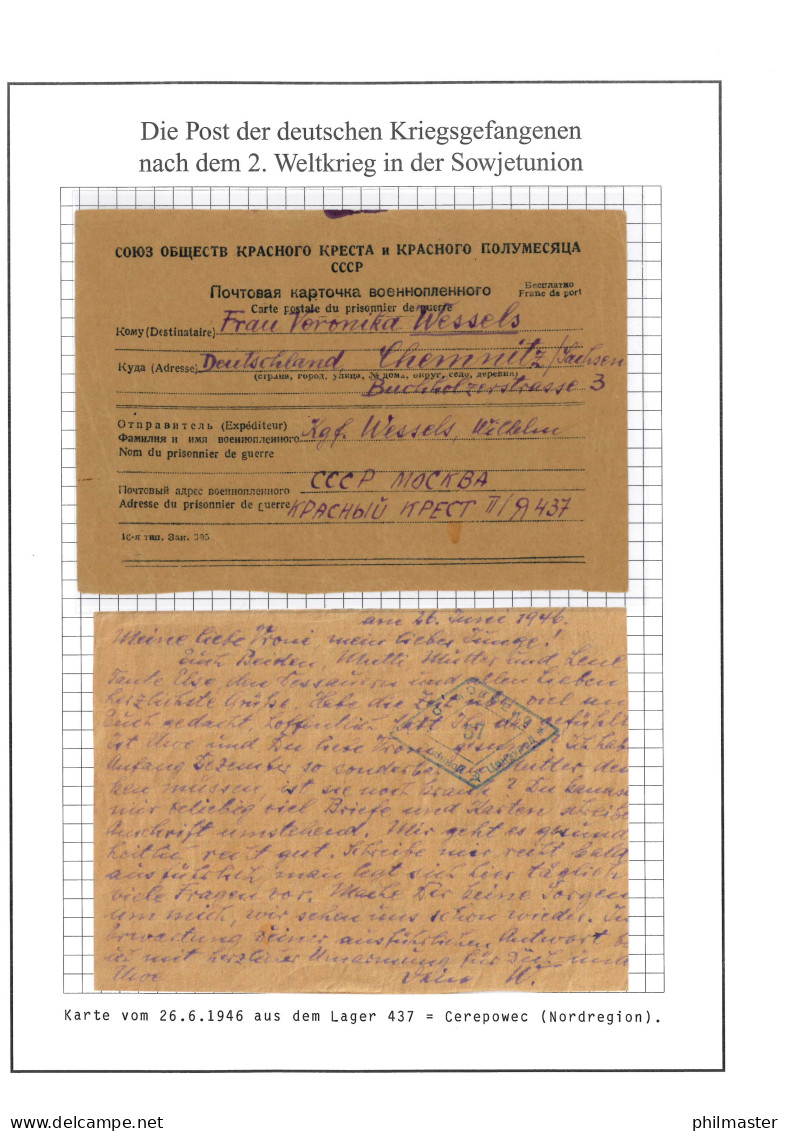 Die Post der deutschen Kriegsgefangenen
nach dem 2. Weltkrieg in der Sowjetunion
СОЮЗ ОБЩЕСТВ КРАСНОГО КРЕСТА и КРАСНОГО ПОЛУМЕСЯЦА
СССР
Почтовая карточка военнопленного
Бесплатно
Franc de port
Carte postale du prisonnier de guerre
Кому (Destinataire) Frau Veronika Wessels
Куда (Adresse) Deutschland, Chemnitz/Sachsen
(страна, город, улица, № дома, округ, село, деревня)
Buchholzerstrasse 3
Отправитель (Expéditeur)
Фамилия и имя военнопленного Kgf. Wessels, Wilhelm
Nom du prisonnier de guerre
Почтовый адрес военнопленного СССР МОСКВА
Adresse du prisonnier de guerre КРАСНЫЙ КРЕСТ П/Я 437
16-я тип. Зак. 305
am 26. Juni 1946.
Meine liebe Vroni, mein lieber Junge!
Euch Beiden, Mutti, Mutter und Lene
Tante Else, den Dessauern und allen Lieben
herzlichste Grüße. Habe die Zeit über viel an
Euch gedacht, hoffentlich habt Ihr das gefühlt
ist Uwe und Du liebe Vroni gesund? Ich hab
Anfang Dezember so sonderbar Mutter den
ken müssen, ist sie noch krank? Du kannst
mir beliebig viel Briefe und Karten schreibe
Anschrift umstehend. Mir geht es gesund
heitlich recht gut. Schreibe mir recht bald
ausführlich, man legt sich hier täglich
viele Fragen vor. Mache Dir keine Sorgen
um mich, wir sehen uns schon wieder. In
Erwartung Deiner ausführlichen Antwort b
ich mit herzlicher Umarmung für Dich und
Uwe Dein W.
51
Karte vom 26.6.1946 aus dem Lager 437 = Cerepowec (Nordregion).
www.delcampe.net
philmaster